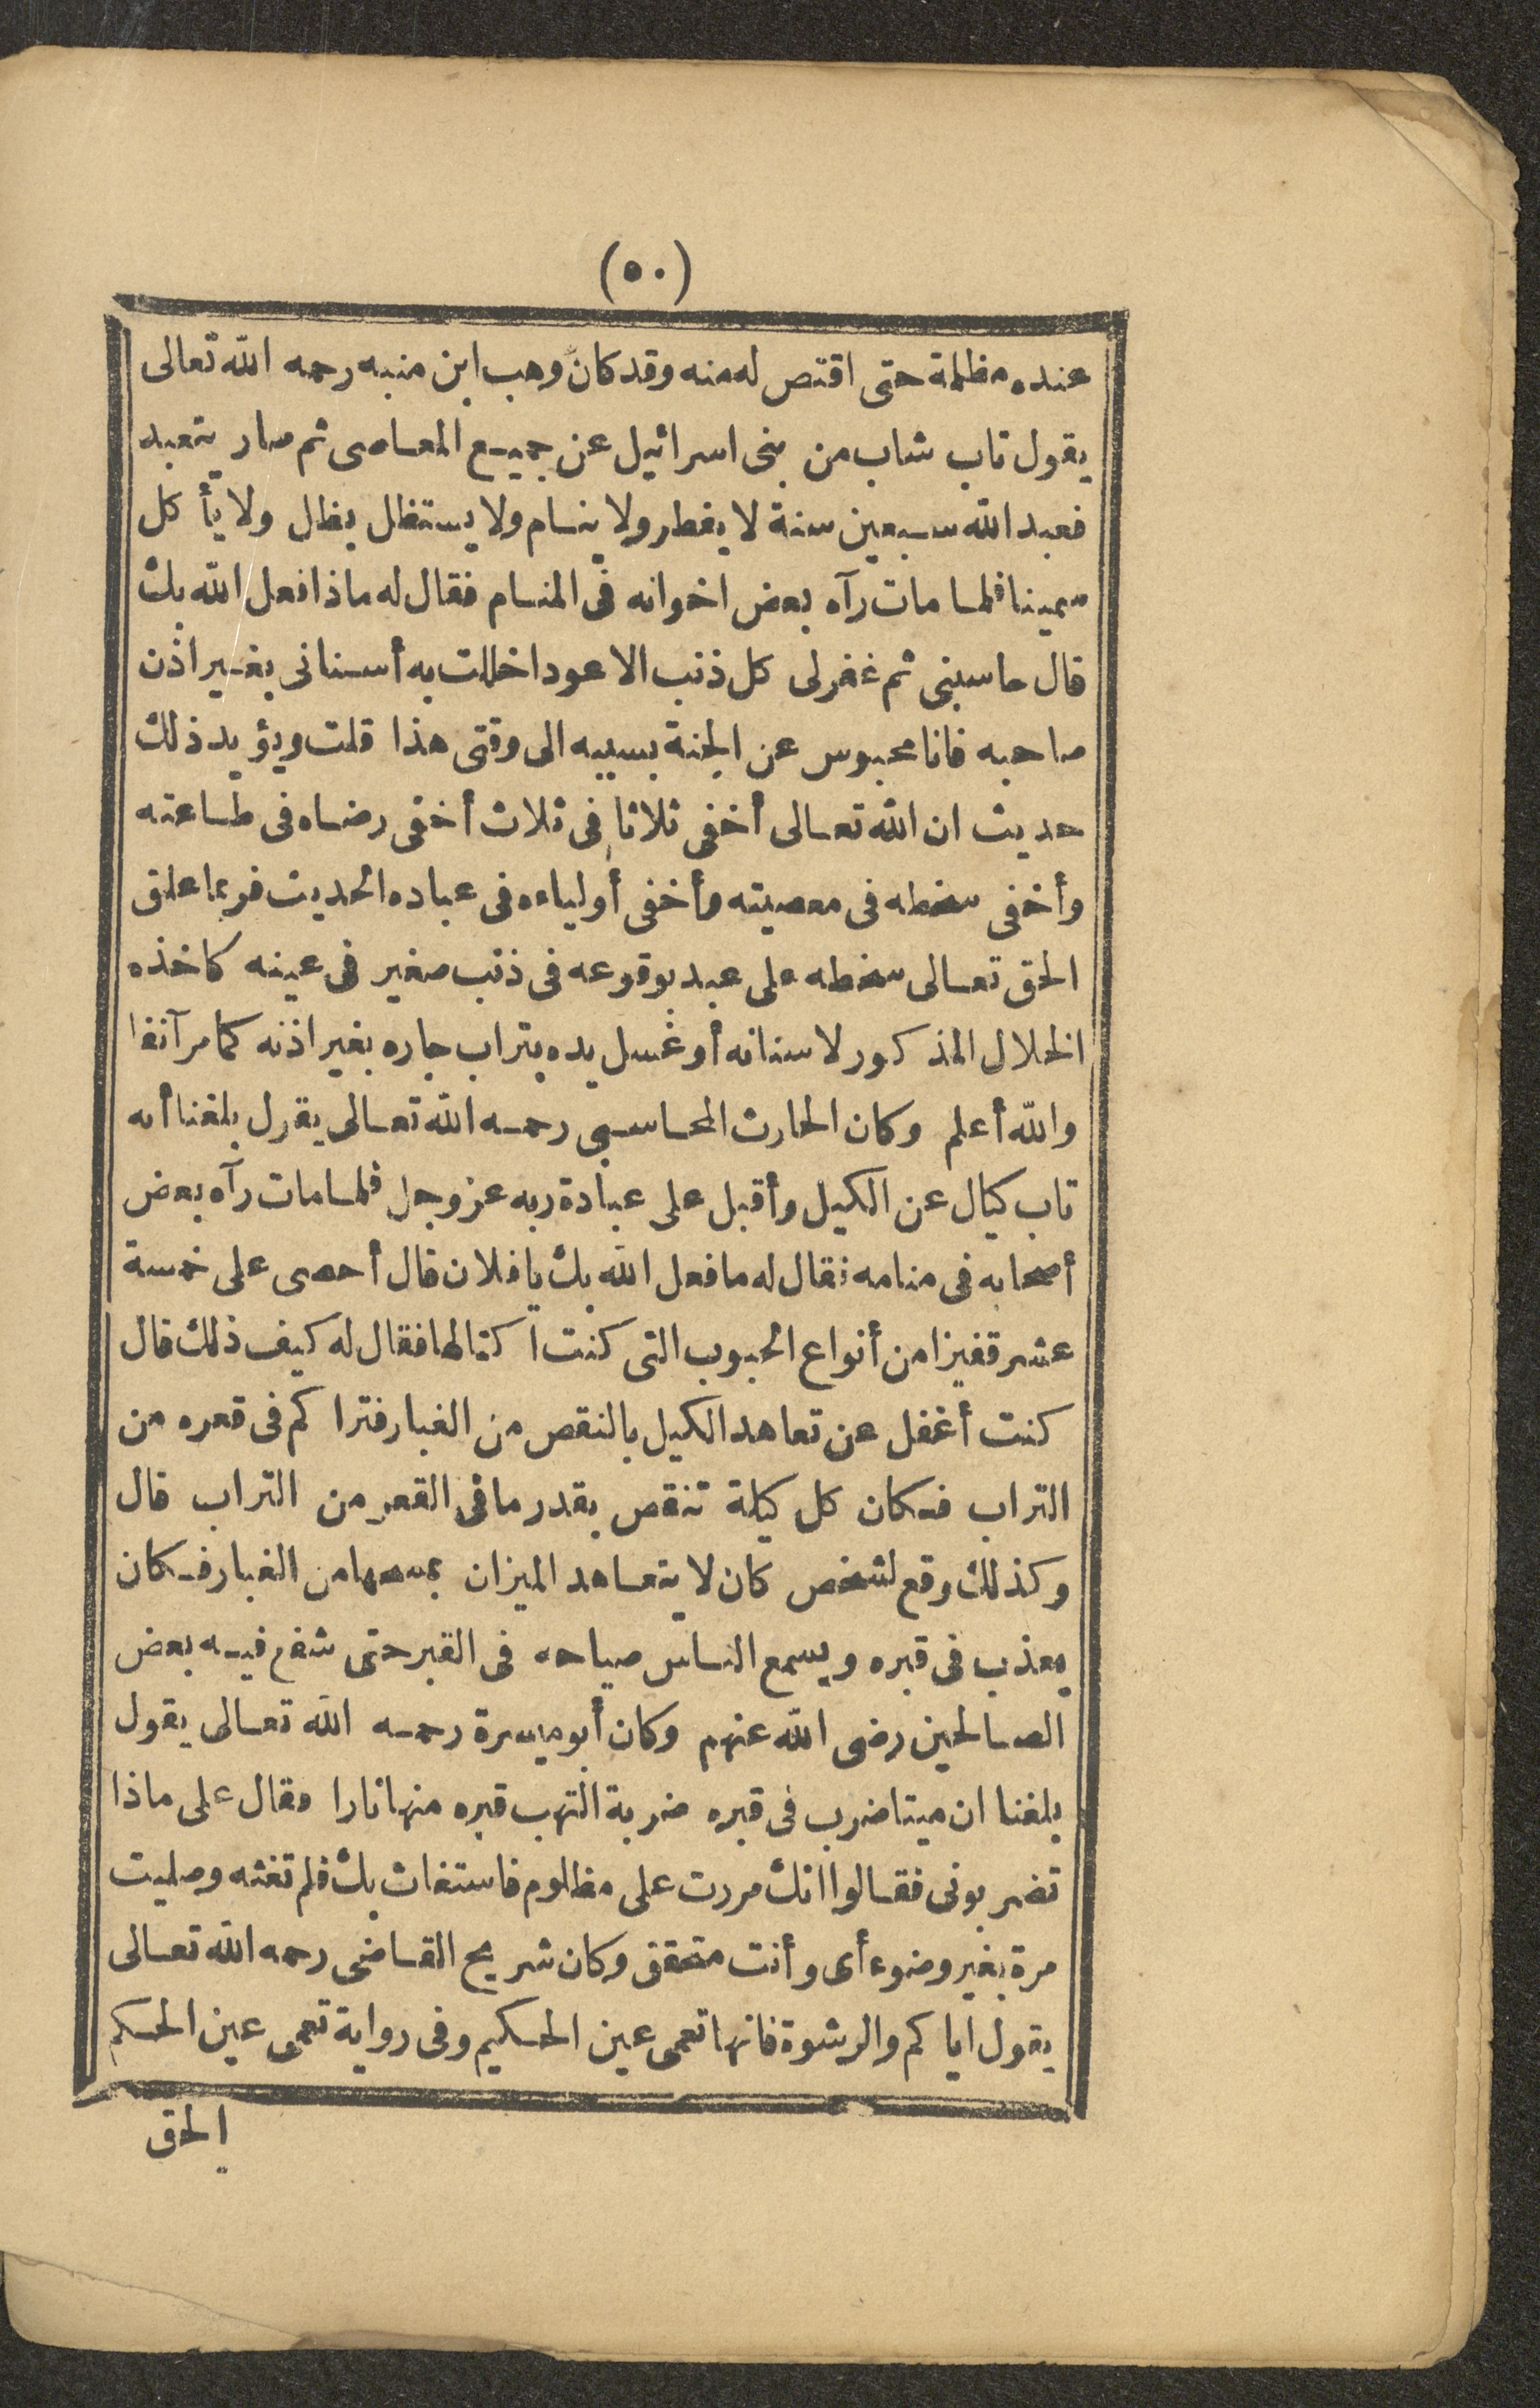 (٥٠)
عنده مظلمة حتى اقتص له منه وقد كان وهب ابن منبه رحمه الله تعالى
يقول تاب شاب من بنى اسرائيل عن جميع المعاصى ثم صار يتعبد
فعبد الله سبعين سنة لا يفطر ولا ينام ولا يستظل بظل ولا يأكل
سمينا فلما مات رآه بعض اخوانه فى المنام فقال له ماذا فعل الله بك
قال حاسبنى ثم غفر لى كل ذنب الا عودا خللت به أسنانى بغير اذن
صاحبه فانا محبوس عن الجنة بسببه الى وقتى هذا قلت ويؤيد ذلك
حديث ان الله تعالى أخفى ثلاثا فى ثلاث أخفى رضاه فى طاعته
وأخفى سخطه فى معصيته وأخفى أولياءه فى عباده الحديث فربما علق
الحق تعالى سخطه على عبد بوقوعه فى ذنب صغير فى عينه كاخذه
الخلال المذكور لاسنانه أو غسل يده بتراب جاره بغير اذنه كما مر آنفا
والله أعلم وكان الحارث المحاسبى رحمه الله تعالى يقول بلغنا أنه
تاب كيال عن الكيل وأقبل على عبادة ربه عز وجل فلما مات رآه بعض
أصحابه فى منامه فقال له ما فعل الله بك يا فلان قال أحصى على خمسة
عشر قفيزا من أنواع الحبوب التى كنت اكتالها فقال له كيف ذلك قال
كنت أغفل عن تعاهد الكيل بالنقص من الغبار فتراكم فى قعره من
التراب فكان كل كيلة تنقص بقدر ما فى القعر من التراب قال
وكذلك وقع لشخص كان لا يتعاهد الميزان بمسحها من الغبار فكان
يعذب فى قبره ويسمع الناس صياحه فى القبر حتى شفع فيه بعض
الصالحين رضى الله عنهم وكان أبو ميسرة رحمه الله تعالى يقول
بلغنا ان ميتا ضرب فى قبره ضربة التهب قبره منها نارا فقال على ماذا
تضربونى فقالوا انك مررت على مظلوم فاستغاث بك فلم تغثه وصليت
مرة بغير وضوء أى وأنت متحقق وكان شريح القاضى رحمه الله تعالى
يقول اياكم والرشوة فانها تعمى عين الحكيم وفى رواية تعمى عين الحكم
الحق